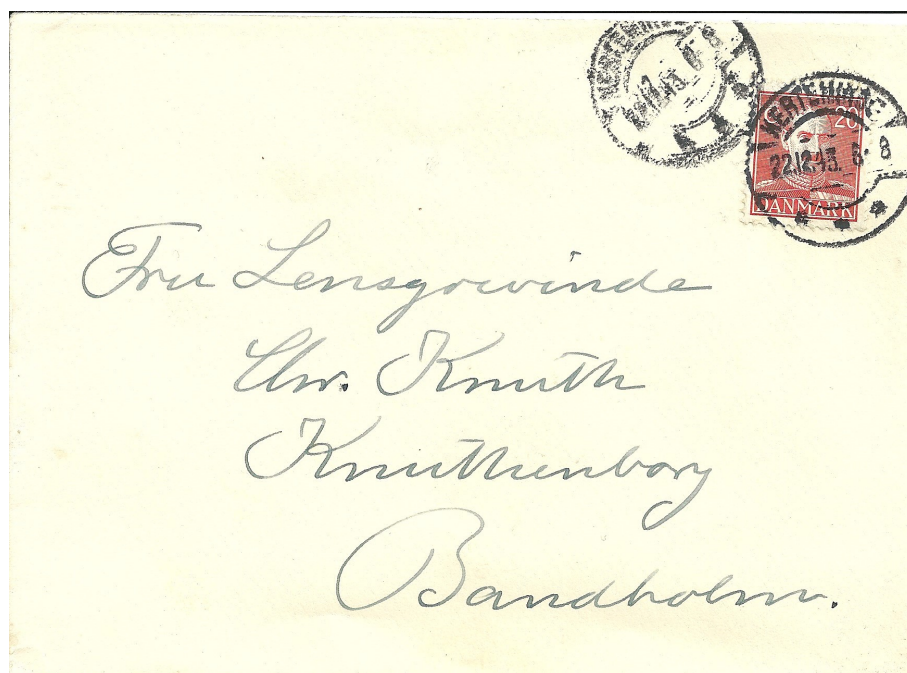 KERTEMINDE
22.12.43. 6-8
KERTEMINDE
22.12.43. 6-8
20
DANMARK
Fru Lensgrevinde
Chr. Knuth
Knuthenborg
Bandholm.